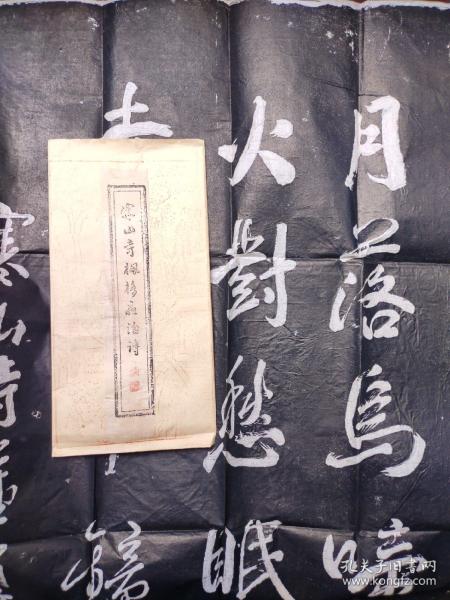 月落烏啼
火對愁眠
寺
鐘
寒山寺舊
寒山寺楓橋夜泊詩
孔夫子旧书网
www.kongfz.com